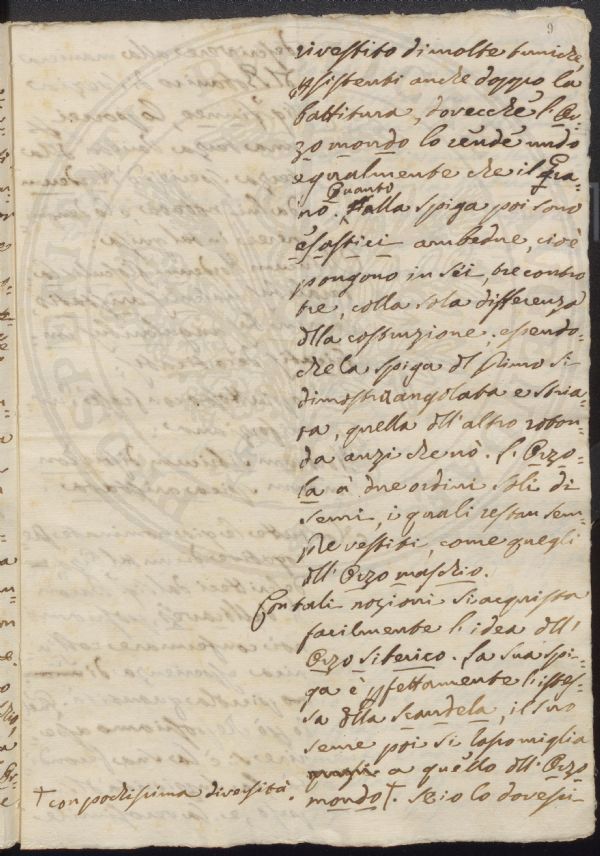 9
rivestito di molte tuniche,
psistenti anche doppo la
battitura, dovecchè l'Or-
zo mondo lo rende nudo
egualmente che il Gra-
no. Quanto alla spiga poi sono
esastici ambedue, cioè
pongono in sei, tre contro
tre, colla sola differenza
dlla costruzione, essendo-
che la spiga dl primo si
dimostra angolata e stria-
ta, quella dll'altro roton-
da anzi che nò. L'Orzo-
la à due ordini soli di
semi, i quali restan sem-
pre vestiti, come quegli
dll'Orzo maschio.
Con tali nozioni si acquista
facilmente l'idea dll'
Orzo siberico. La sua spi-
ga è pfettamente l'istes-
sa dlla scandela, il suo
seme poi si rassomiglia
quasi a quello dll'Orzo
mondo†. Se io lo dovessi
† con pochissima diversità.